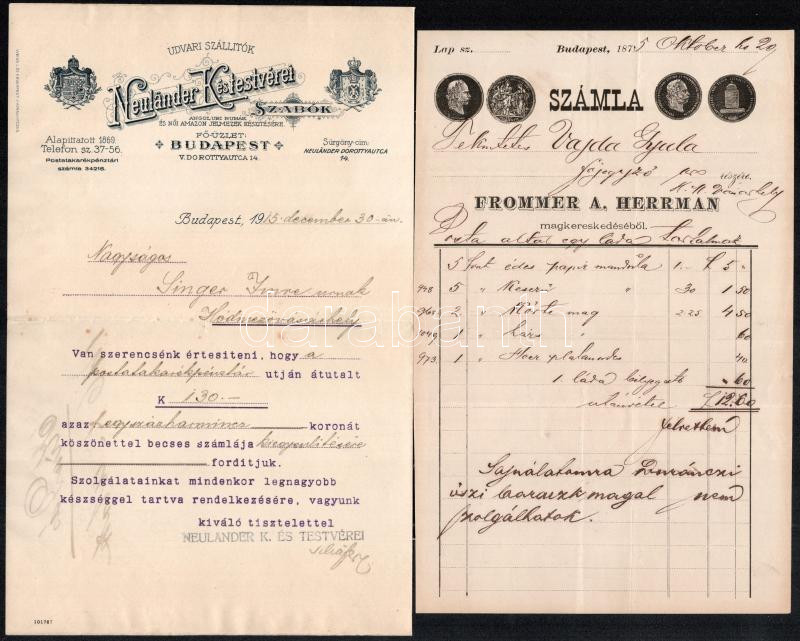 UDVARI SZÁLLITÓK
Neuländer K. és testvérei
SZABÓK
ANGOL URI RUHÁK
ÉS NŐI AMAZON JELMEZEK KÉSZITÉSÉRE.
FŐÜZLET:
BUDAPEST
V. DOROTTYAUTCA 14.
Alapittatott 1869.
Telefon sz. 37-56.
Postatakarékpénztári
számla 34216.
Sürgöny-cim:
NEULÄNDER DOROTTYAUTCA
14.
Budapest, 1915 december 30-án
Nagyságos
Singer Imre urnak
Hódmezővásárhely
Van szerencsénk értesiteni, hogy a
postatakarékpénztár utján átutalt
K 130.—
azaz egyszázharmincz koronát
köszönettel becses számlája kiegyenlitésére
forditjuk.
Szolgálatainkat mindenkor legnagyobb
készséggel tartva rendelkezésére, vagyunk
kiváló tisztelettel
NEULANDER K. ÉS TESTVÉREI
101767
Lap sz. Budapest, 1875 Oktober hó 20
SZÁMLA
Tekintetes Vajda Gyula
főjegyző úr részére
H. M. Vásárhely
FROMMER A. HERRMAN
magkereskedéséből.
Posta által egy láda tartalmak
5 font édes papir mandula 1.— f 5 "
5 " Keserű " 30 1 50
2 " Körte mag 225 4 50
1 " 60
973 1 " 40
1 láda " 60
f 12.60
Sajnálatomra Duránczi
őszi baraczk magal nem
szolgálhatok.
darabanth